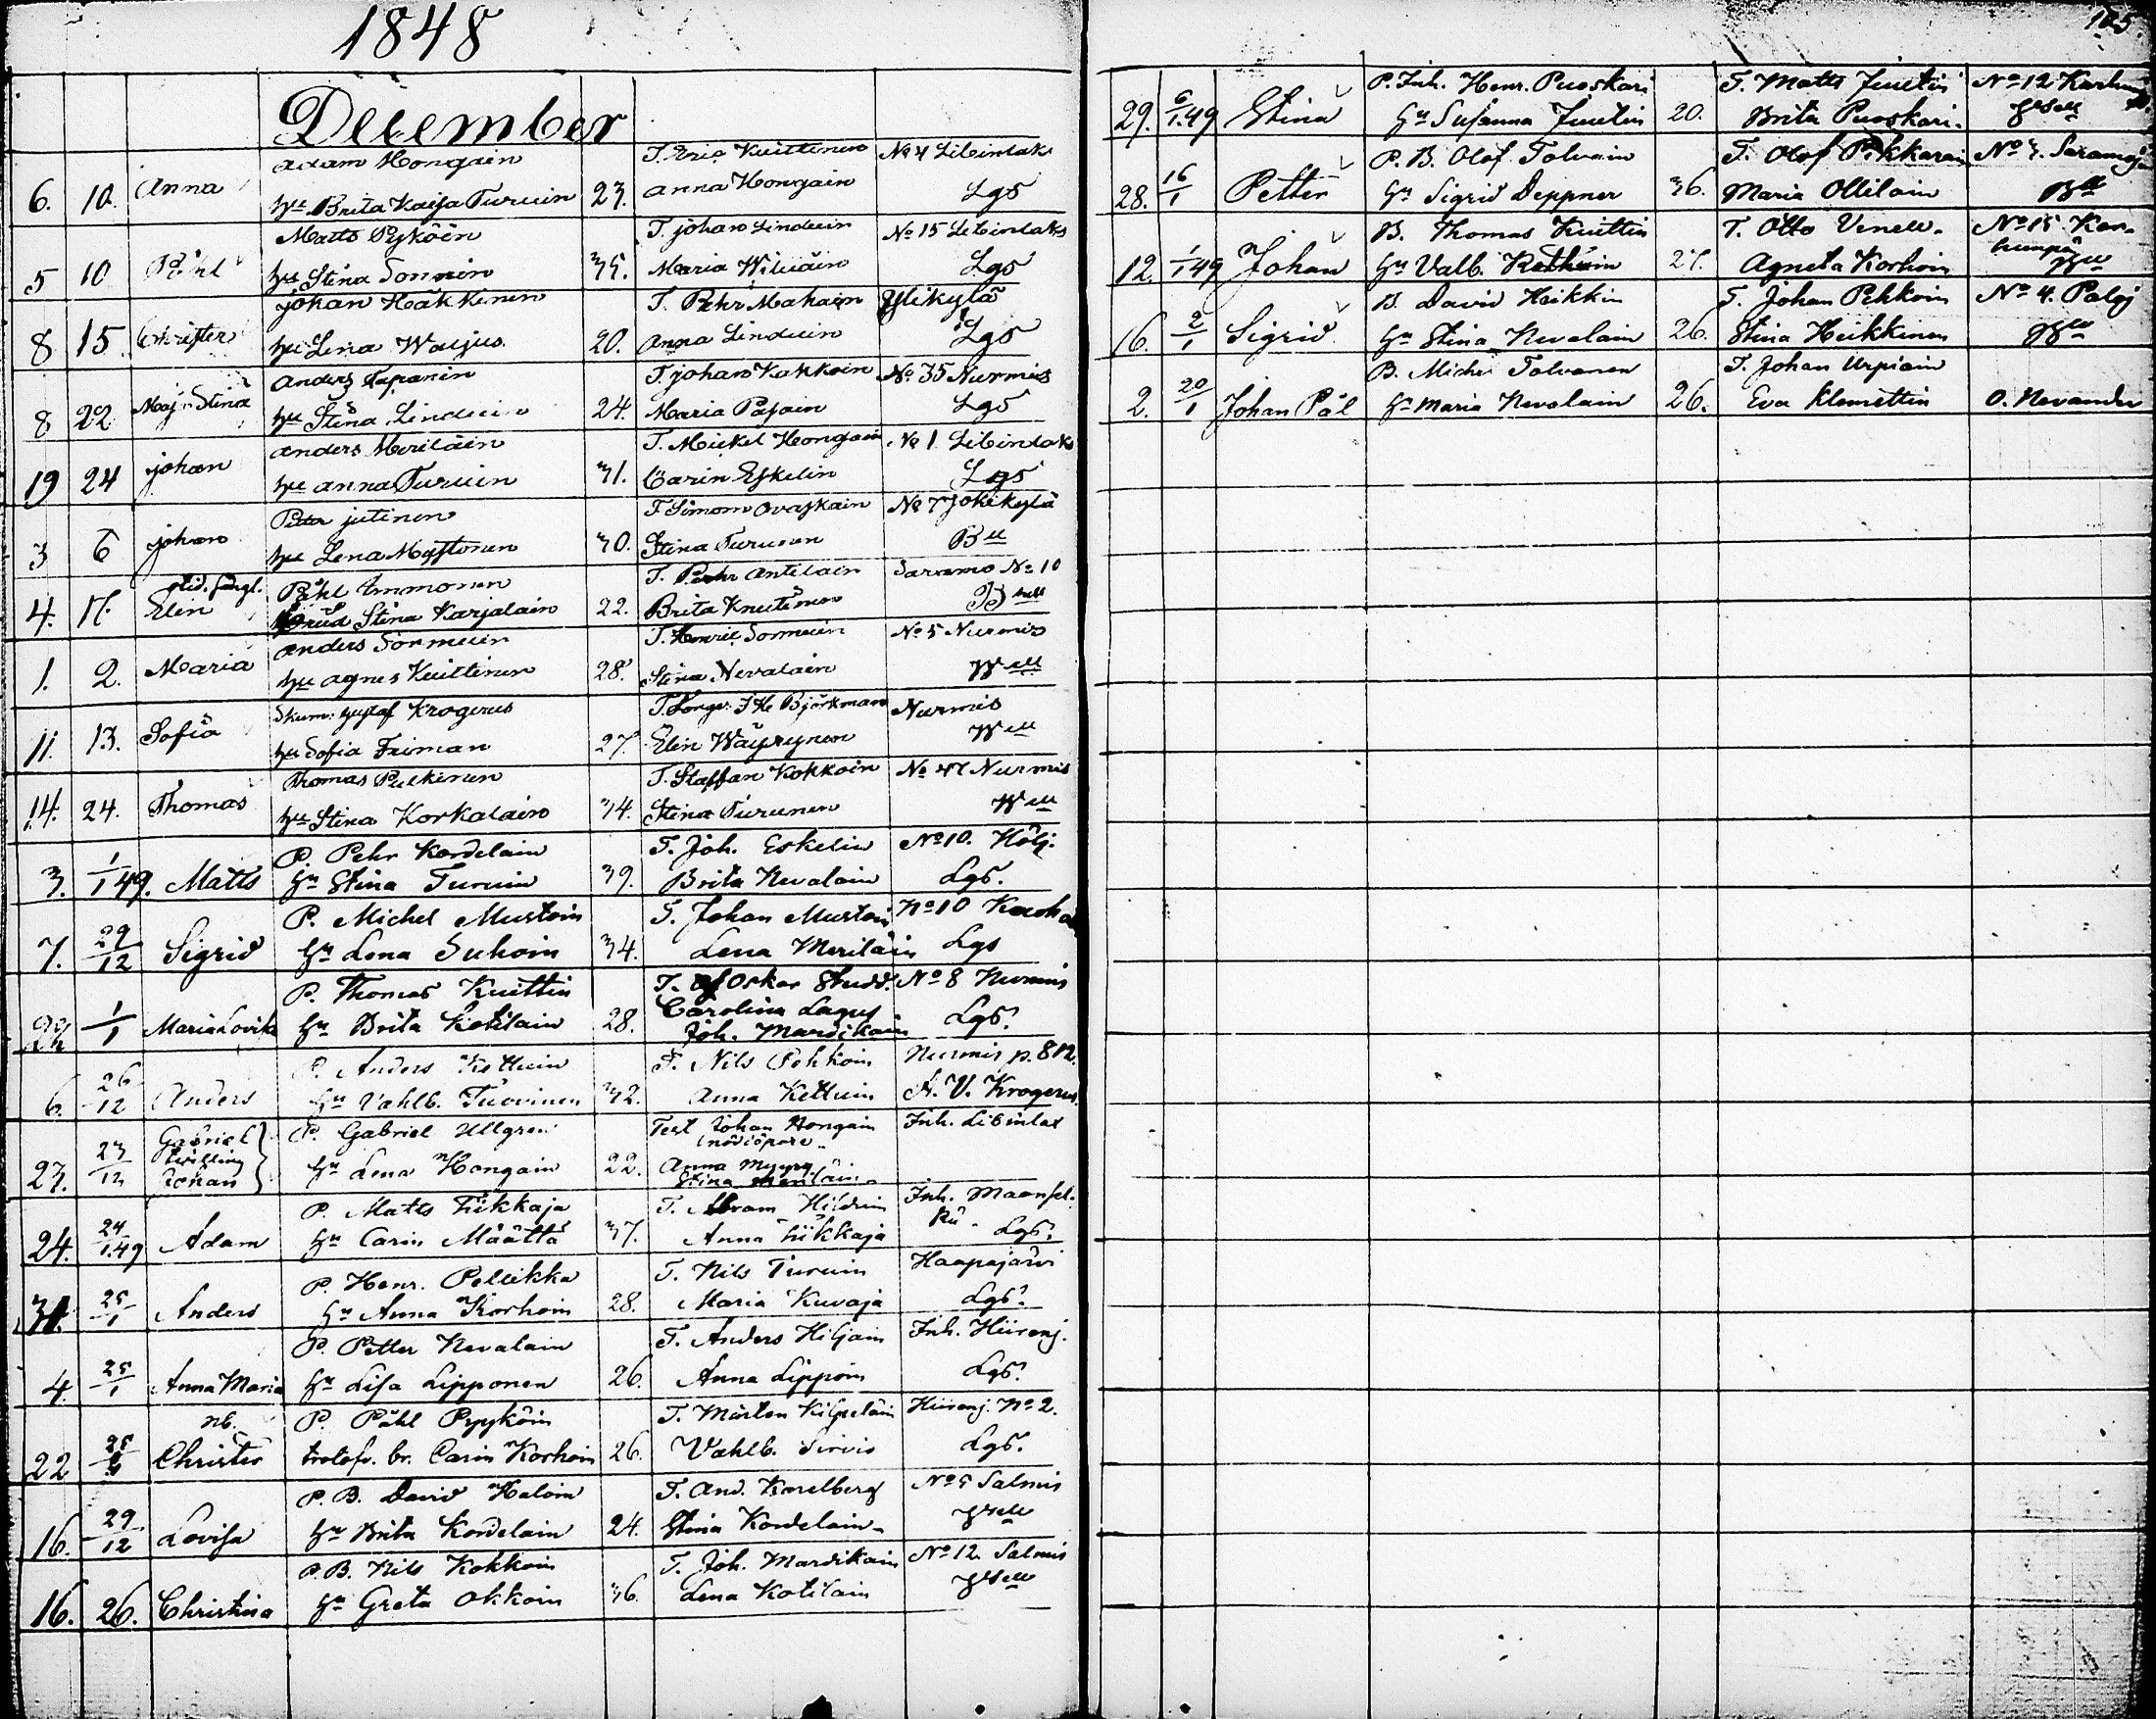 1848
December
Adam Hongain T. Eric Kuittinen No 4 Libinlaks
6. 10. Anna hu Brita Kaija Turuin 23. Anna Hongain Lgs
Matts Pyköin T. johan Linduin No 15 Libinlaks
5 10 Påhl hu Stina Sormin 35. Maria Wiluäin Lgs
johan Häkkinen T. Pehr Mahain Ylikylä
8 15. Christer hu Lena Waijus 20. Anna Linduin Lgs
Anders Tapanin T. johan Kakkoin No 35 Nurmis
8 22. Maj: Stina hu Stina Linduin 24. Maria Pasain Lgs
Anders Meriläin T. Mickel Hongain No 1 Libinlaks
19 24 johan hu Anna Turuin 31. Carin Eskelin Lgs
Petter jutinen T. Simom Ovaskain No 7 Jokikylä
3 6 johan hu Lena Mustonen 30. Stina Turunen Bll
Påhl Immonen T. Pehr Antilain Saramo No 10
4. 17. Elin Stina Karjalain 22. Brita Knutinen
Anders Sormuin T. Henric Sormuin No 5 Nurmis
1. 2. Maria hu Agnes Kuittinen 28. Stina Nevalain
Skum: Gustaf Krogerus T. Björkman Nurmis
11. 13. Sofia hu Sofia Friman 27. Elin Wäyrynen
Thomas Pulkinen T. Staffan Kokkoin No 47 Nurmis
14. 24. Thomas hu Stina Korkalain 34. Stina Turunen
P. Pehr Kordelain T. Joh. Eskelin No 10. Hölj.
3. 1/1 49. Matts hu Stina Turuin 39. Brita Nevalain Lgs.
P. Michel Mustoin T. Johan Mustoin No 10
7. 29/12 Sigrid hu Lena Suhoin 34. Lena Meriläin Lgs
P. Thomas Kuittin T. Oskar Stud. No 8 Nurmis
Carolina Lagus
1/1 Maria Lovisa hu Brita Kotilain 28. Joh. Mardikain Lgs.
P. Anders Kettuin T. Nils Pehkoin Nurmis p. 812.
6. 26/12 Anders hu Vahlb. Tuovinen 32. Anna Kettuin A. V. Krogerus
Gabriel P. Gabriel Ullgren Test Johan Hongain Inh. Libinlax
23. 23/12 tvilling Johan hu Lena Hongain 22. Anna
Stina Meriläin
P. Matts Tikkaja T. Abram Hildrin Inh. Maansel-
24. 24/1.49 Adam hu Carin Määttä 37. Anna Tiikkaja kä. Lgs.
P. Henr. Pellikka T. Nils Turuin Haapajärvi
31. 25/1 Anders hu Anna Korhoin 28. Maria Kuvaja Lgs.
P. Petter Nevalain T. Anders Hiljain Inh. Hiirenj.
4. 25/1 Anna Maria hu Lisa Lipponen 26. Anna Lippoin Lgs.
nb. P. Påhl Pyyköin T. Mårten Kilpeläin Hiirenj. No 2.
22 Christer trolofv. br. Carin Korhoin 26. Vahlb. Sirvio Lgs.
P. B. David Haloin T. And. Karelberg No 5 Salmis
16. 29/12 Lovisa hu Brita Kordelain 24. Stina Kordelain
P. B. Nils Kokkoin T. Joh. Mardikain No 12. Salmis
16. 26. Christina hu Greta Okkoin 36. Lena Kotilain
125.
P. Inh. Henr. Puoskari T. Matts Juutin No 12
29. 6/1.49 Stina hu Susanna Juutin 20. Brita Puoskari.
P. B. Olof Tolvain T. Olof Pikkarain No 3. Saramoj.
28. 16/1 Petter hu Sigrid Deppner 36. Maria Ollilain Bll
B. Thomas Kuittin T. Otto Venell. No 15. Kar-
12. 1/1 49 Johan hu Valb. 27. Agneta Korhoin humpää
B. David Heikkin T. Johan Pehkoin No 4. Paloj
16. 2/1 Sigrid hu Stina Nevalain 26. Stina Heikkinen
B. Michel Tolvanen T. Johan Urpiain
2. 20/1 Johan Pål hu Maria Nevalain 26. Eva Klemettin O. Nevander